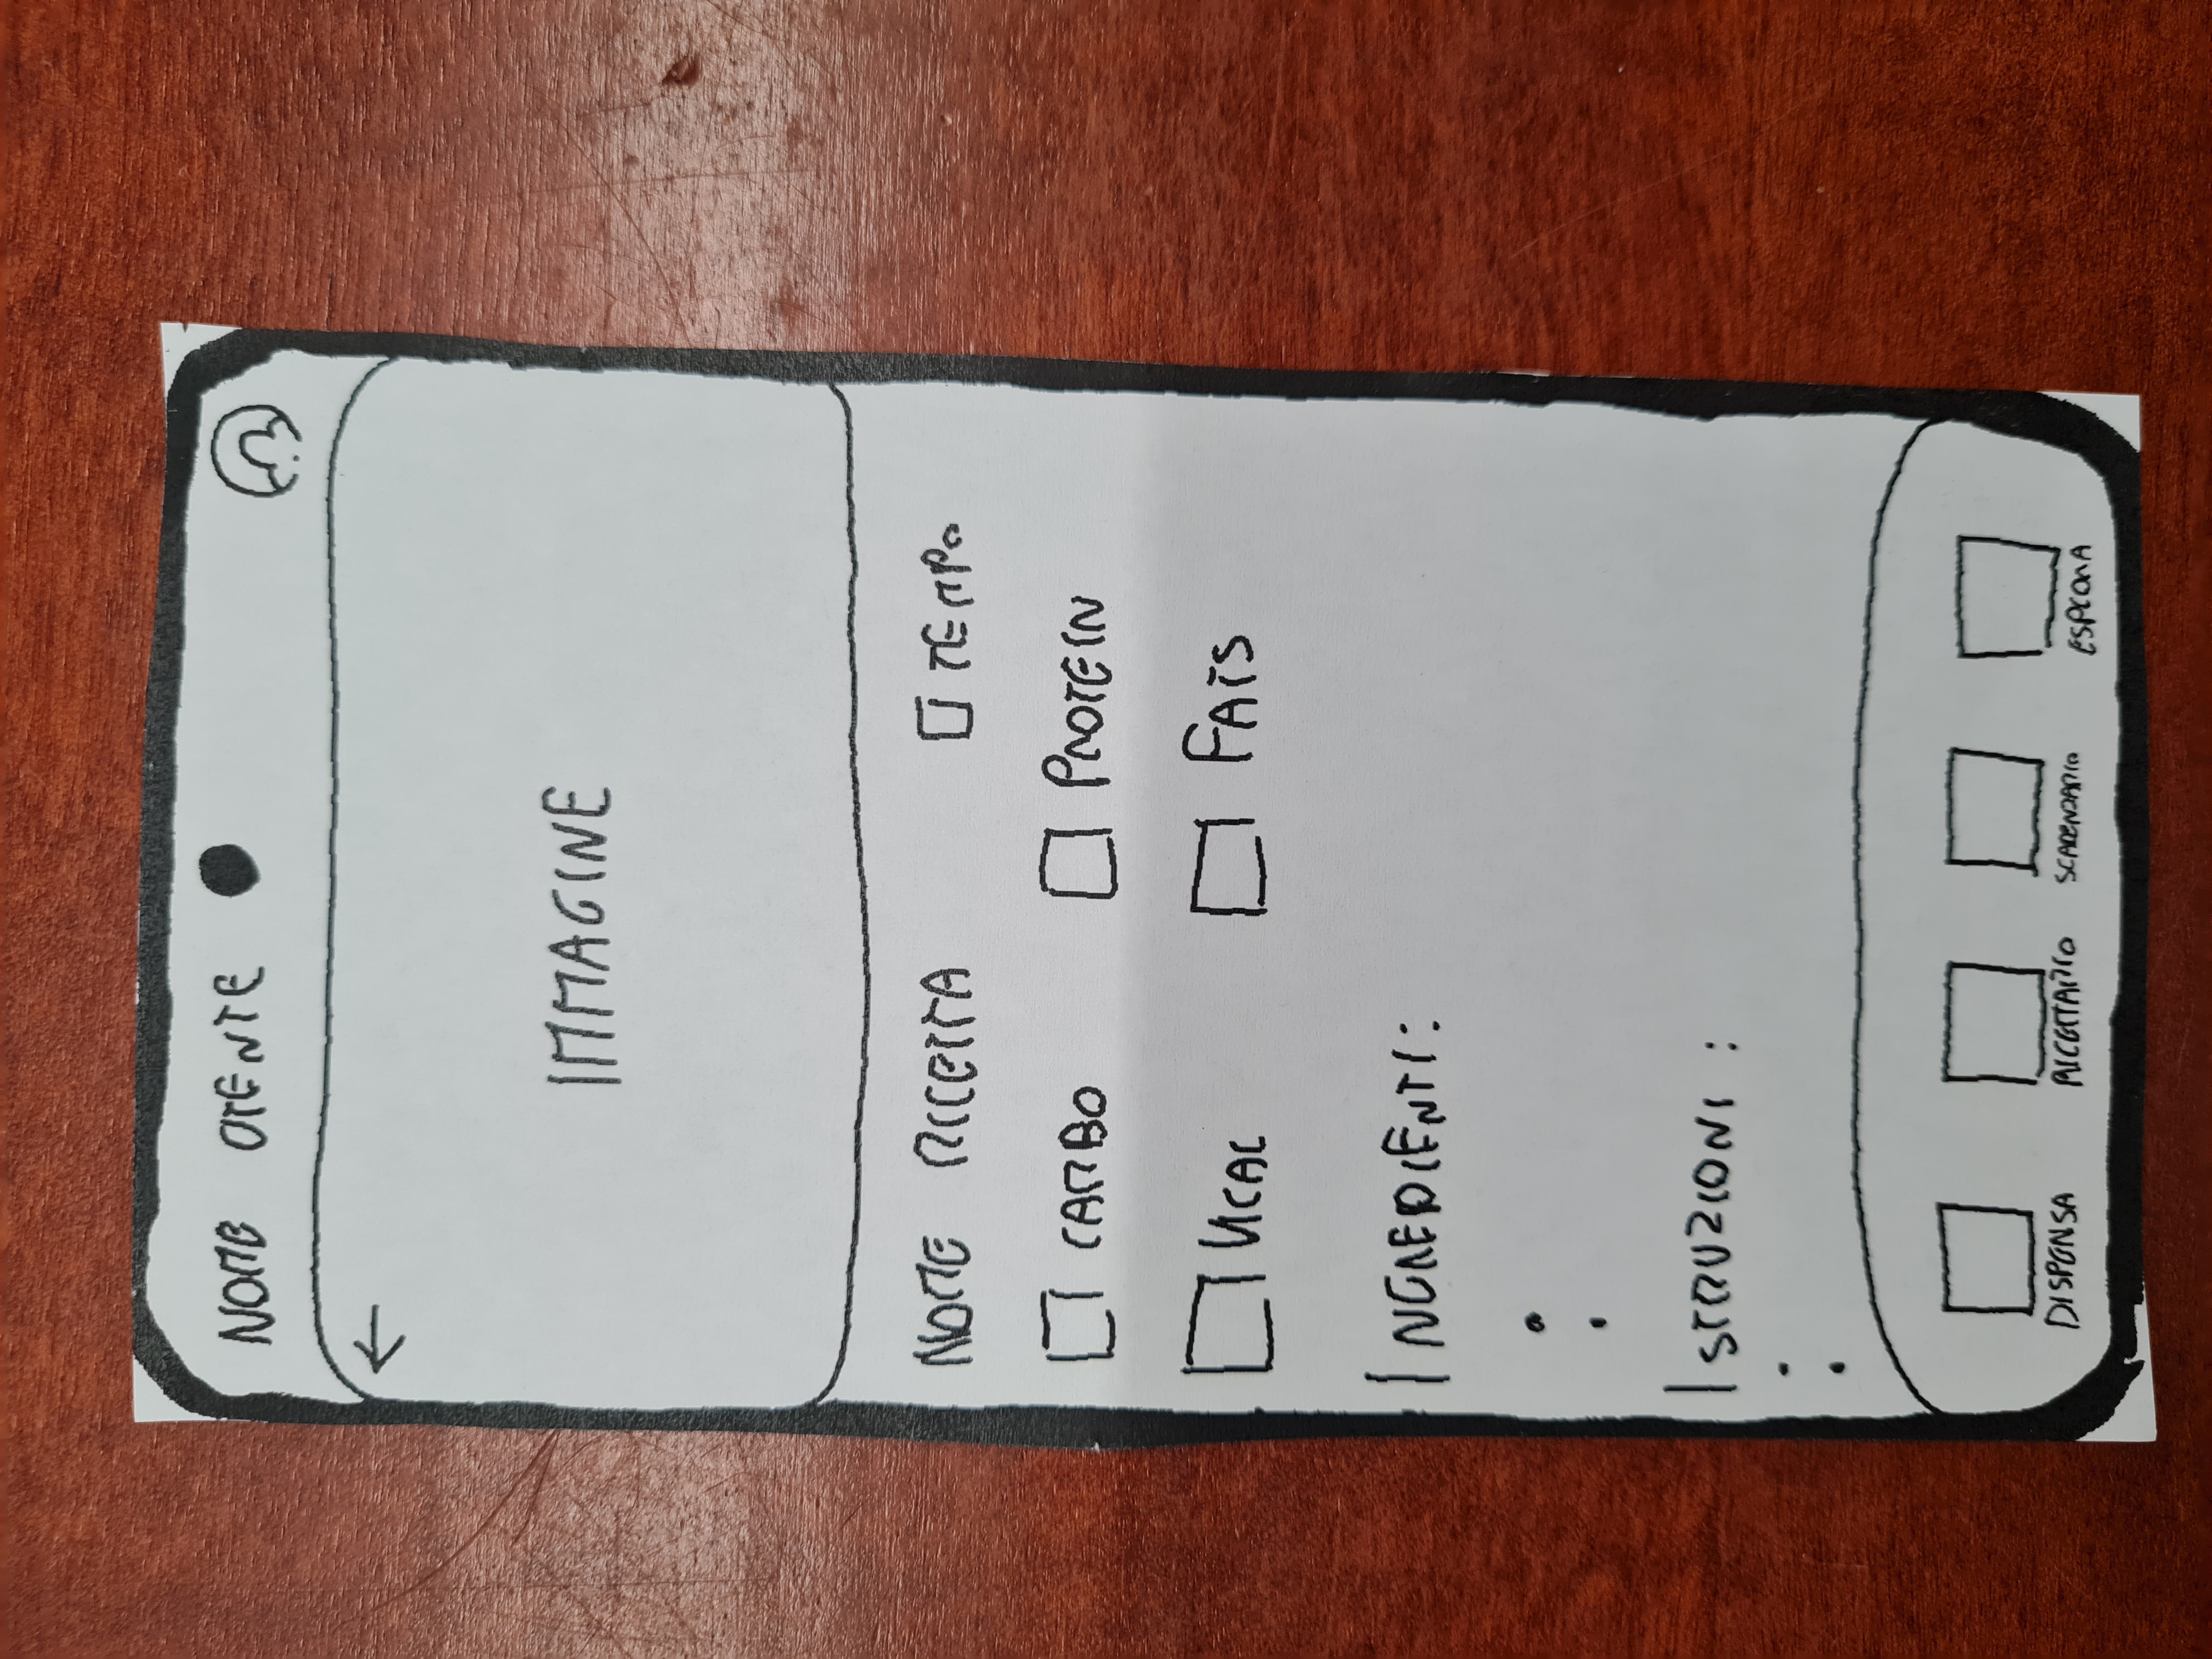 NOME UTENTE
IMMAGINE
NOME RICETTA TEMPO
CARBO PROTEIN
KCAL FATS
INGREDIENTI:
ISTRUZIONI:
DISPENSA RICETTARIO SCADENZARIO ESPLORA